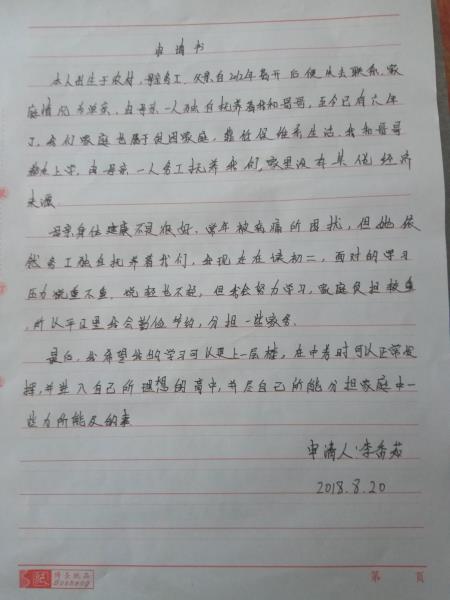 申请书
本人出生于农村,母亲务工、父亲自2012年离开后便失去联系,家
庭情况为单亲,由母亲一人独自抚养着我和哥哥,至今已有六年
了,我们家庭也属于贫困家庭,靠低保维系生活,我和哥哥
都在上学,由母亲一人务工抚养我们,家里没有其他经济
来源
母亲身体健康不是很好,常年被病痛所困扰,但她依
然务工独自抚养着我们,我现在在读初二,面对的学习
压力说重不重,说轻也不轻,但我会努力学习,家庭负担较重
,所以平日里我会勤俭节约,分担一些家务.
最后,我希望我的学习可以更上一层楼,在中考时可以正常发
挥,并进入自己所理想的高中,并尽自己所能分担家庭中一
些力所能及的事
申请人:李香茹
2018.8.20
博圣纸品
Bosheng
第 页